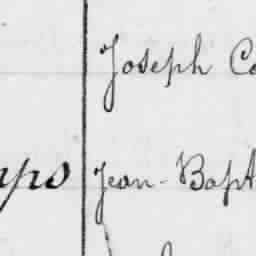 Joseph Co
yps Jean-Bapt